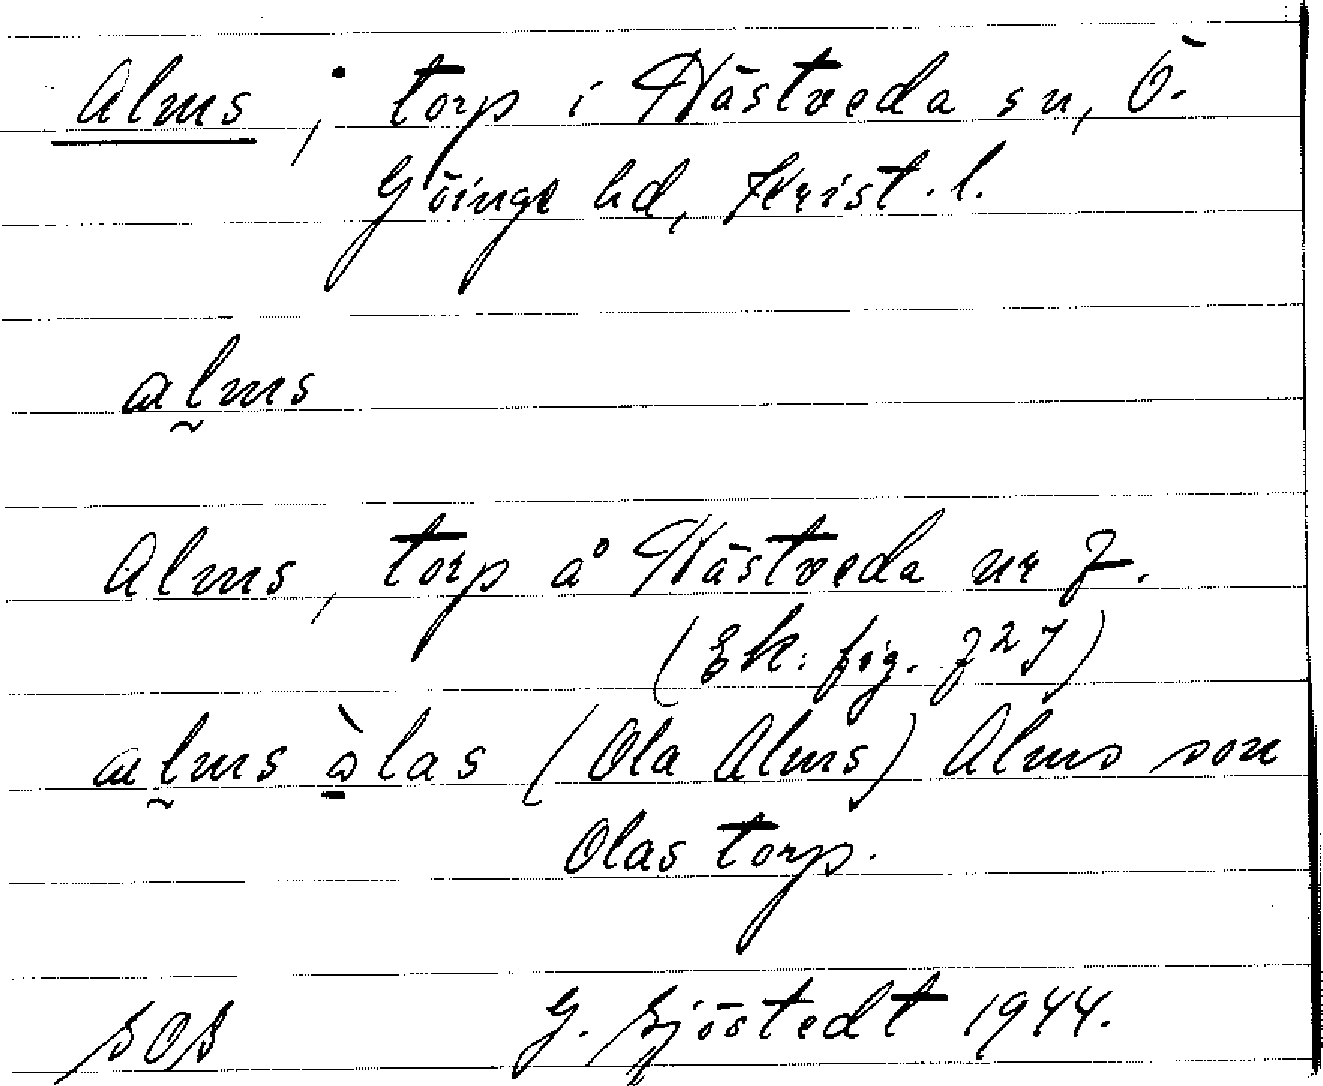 Alms, torp i Hästveda sn, Ö.
Göinge hd, Krist. l.
alms
Alms, torp å Hästveda nr 7.
(Ek. fig. 727)
alms olas (Ola Alms) Alms som
Olas torp.
SOS G. Sjöstedt 1944.